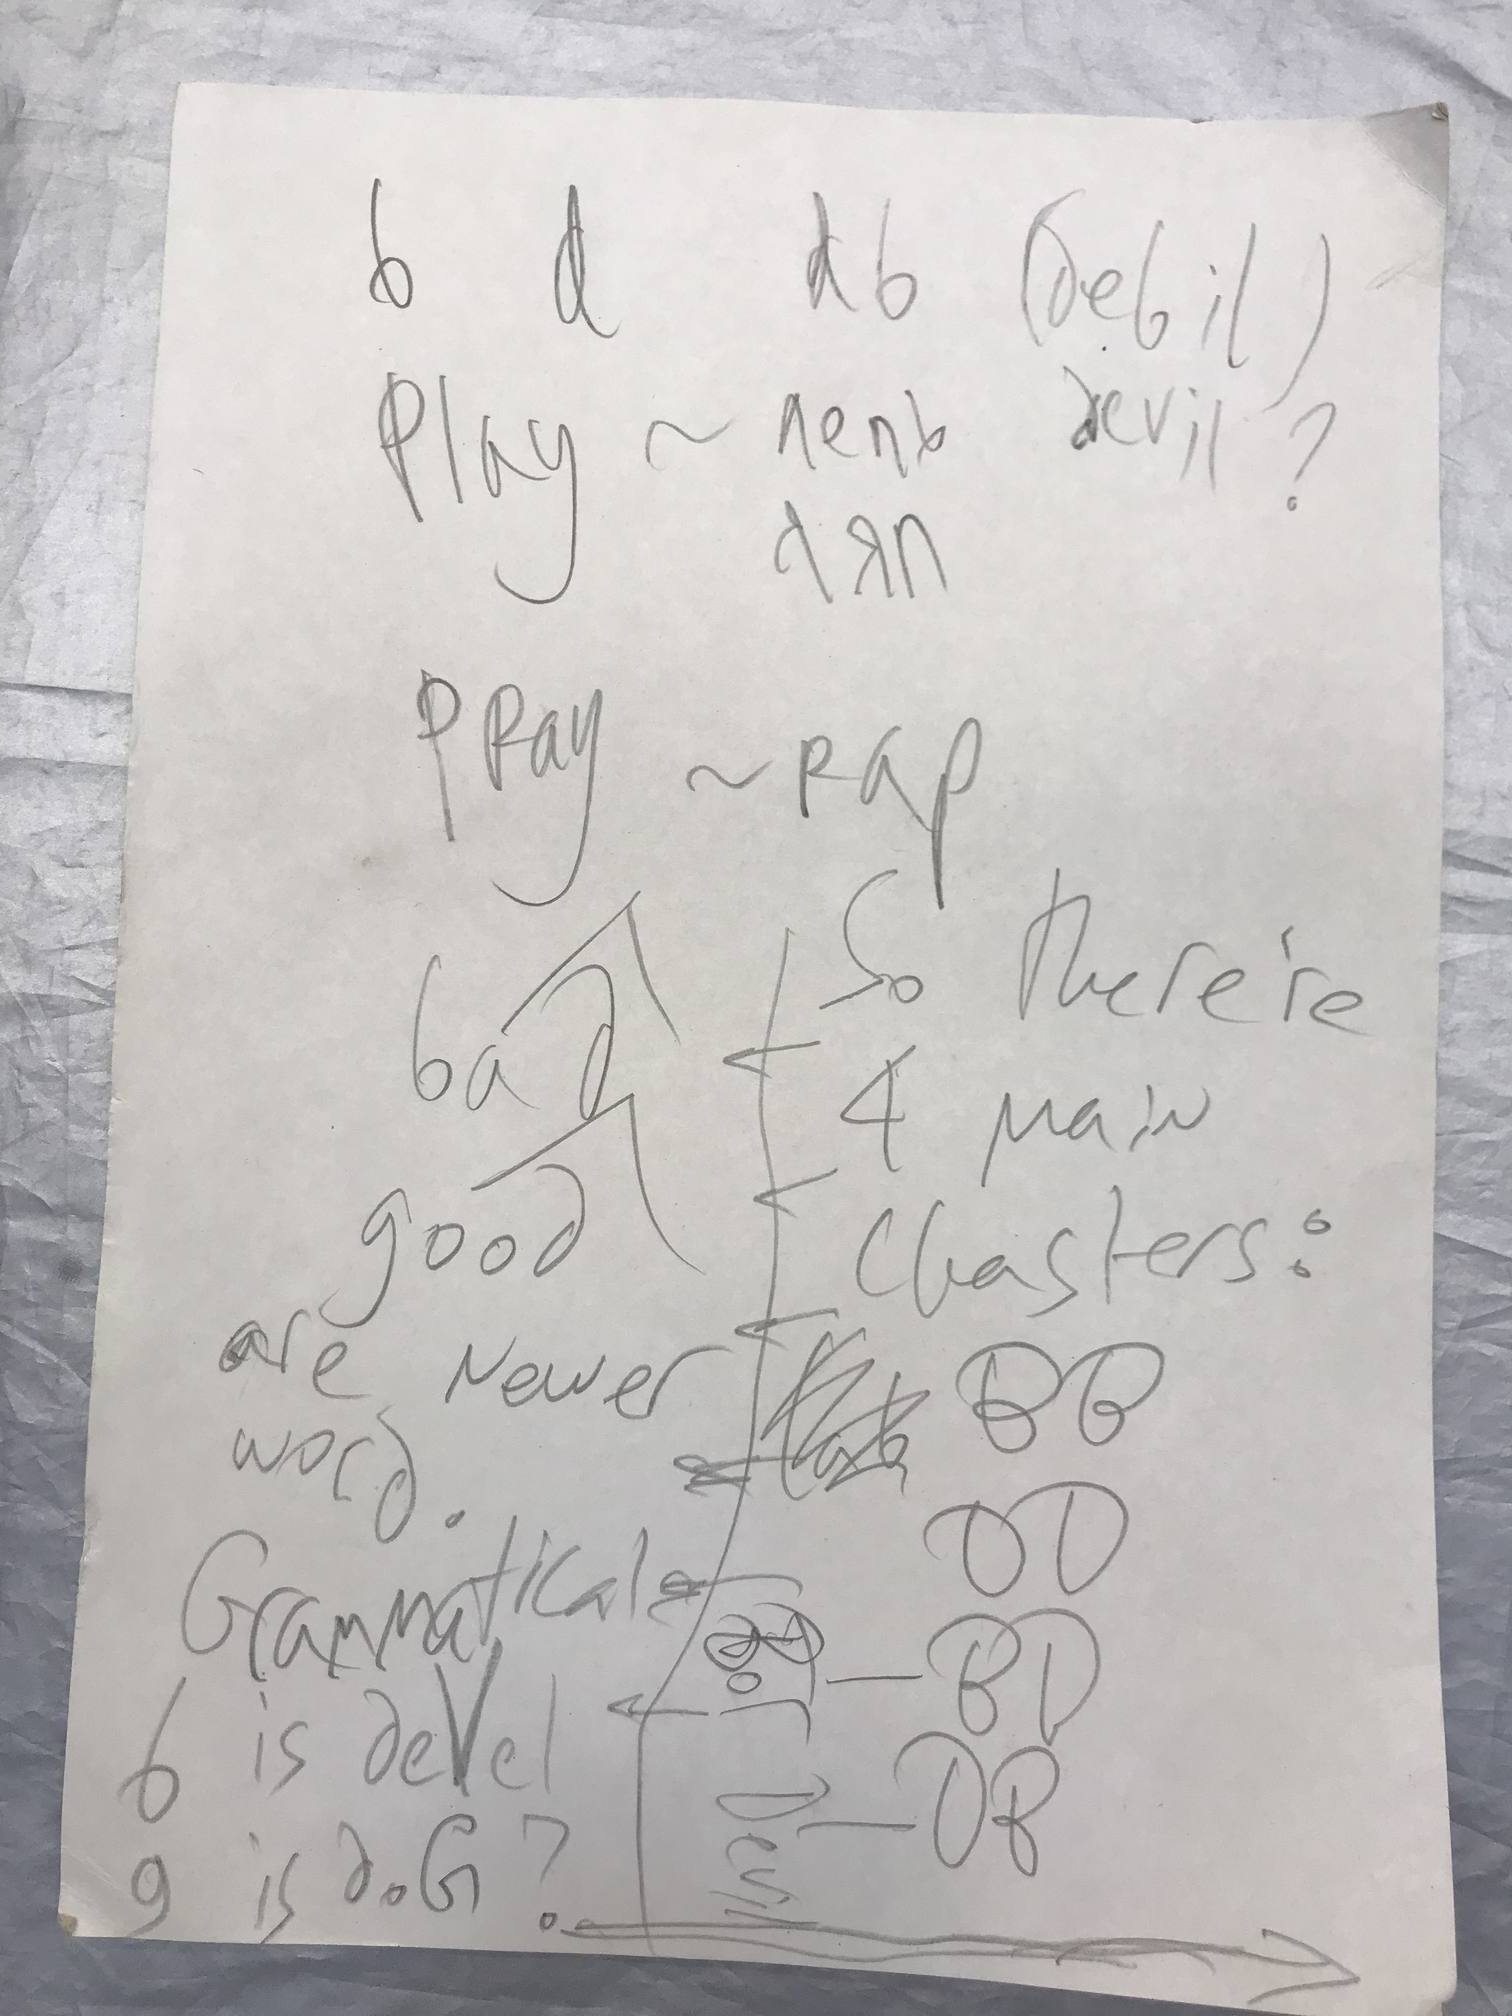 b d db (Debil)
Play ~ лень devil?
для
PRay ~ Rap
bad
good
are newer
word.
Grammatical
6 is devel
9 is do.G?
So there're
4 main
Clasters:
BB
DD
BD
Devil — DB